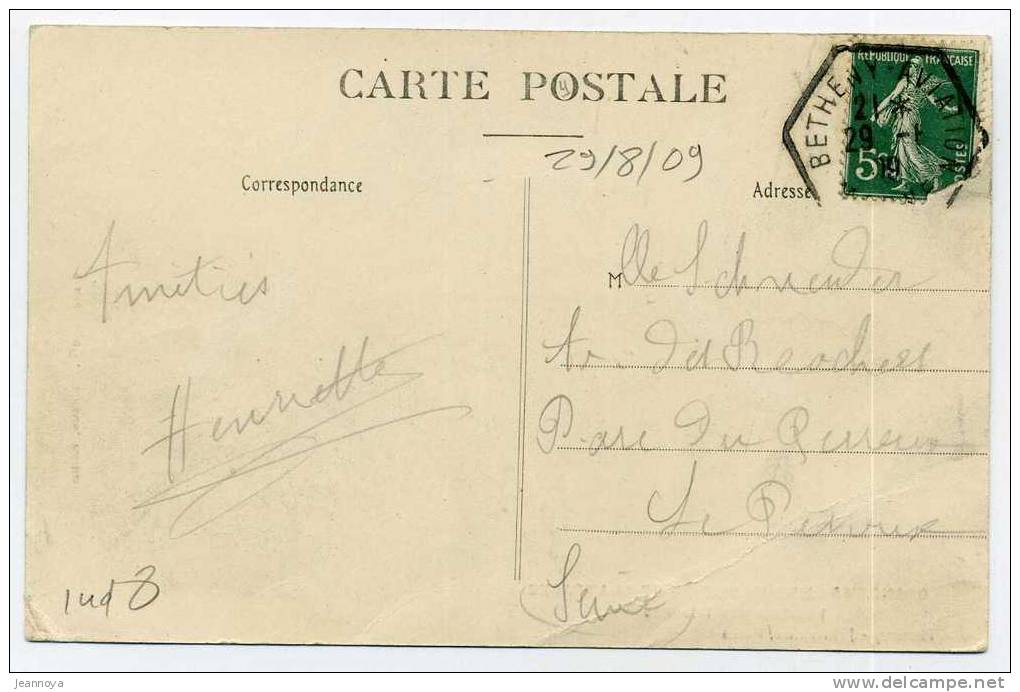 CARTE POSTALE
REPUBLIQUE FRANÇAISE
BETHENY-AVIATION
21 *
29 -
19
5c
POSTES
29/8/09
Correspondance
Adresse
Amitiés
Henriette
Mlle Schneider
Parc Du Perreux
Le Perreux
(Seine
ind 8
jeannoya
www.delcampe.net